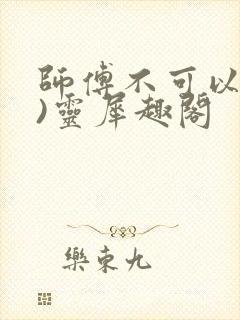 師傅不可以
)靈犀趣閣
樂東九